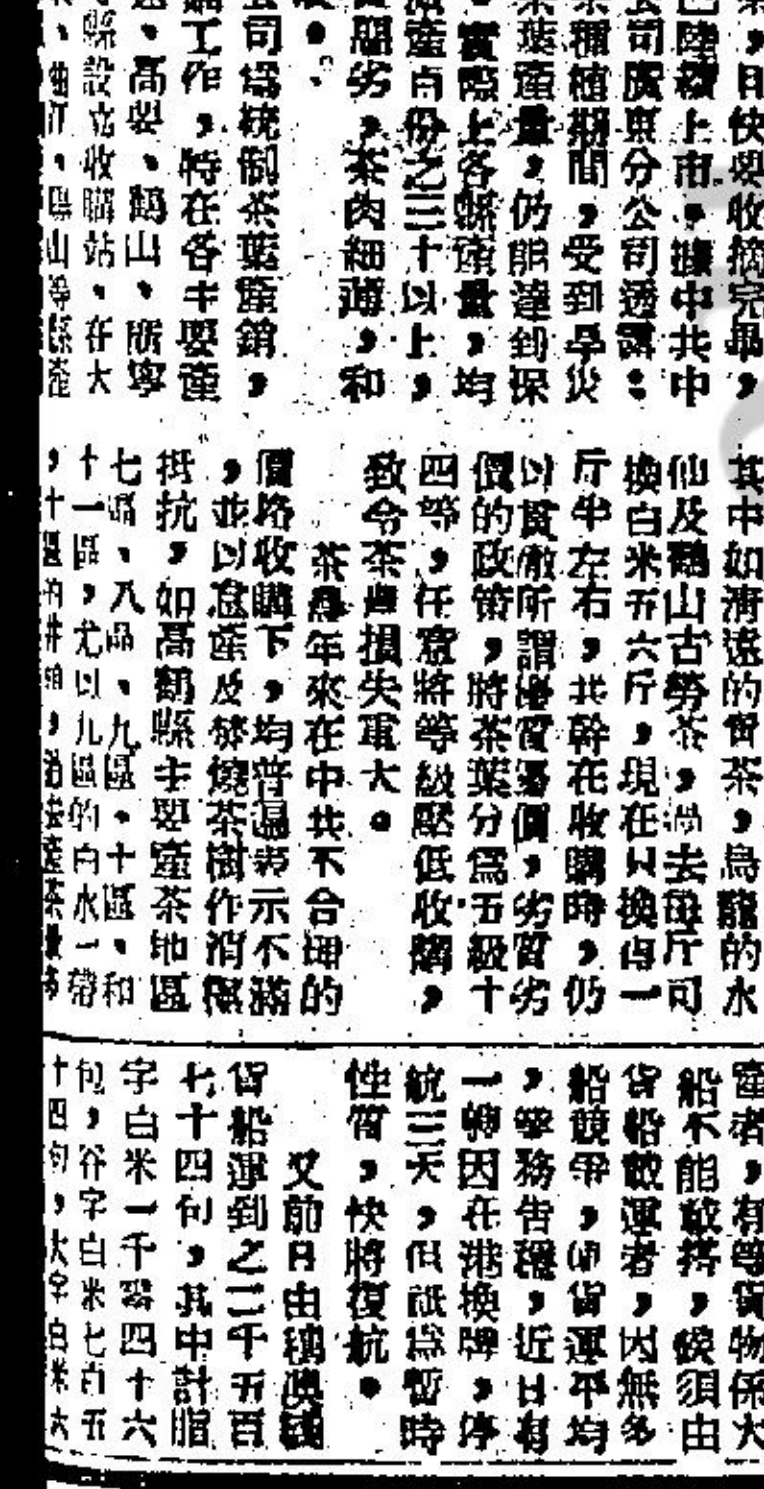 ，目快要收摘完畢，
已陸續上市。據中共中
公司廣東分公司透露：
茶種植期間，受到旱災
茶葉產量，仍能達到保
實際上各縣產量，均
產百份之三十以上，
惡劣，茶肉細薄，和
公司為統制茶葉產銷，
工作，特在各主要產
高要、鶴山、新寧
縣設立收購站。在大
山等縣產
其中如清遠的
茶，烏龍的水
仙及鶴山古勞茶，過去每斤可
換白米五六斤，現在只換得一
斤半左右，共幹在收購時，仍
以貫徹所謂優質優價，劣質劣
價的政策，將茶葉分為五級十
四等，任意將等級壓低收購，
致令茶農損失重大。
茶農年來在中共不合理的
價格收購下，均普遍表示不滿
，並以怠產及焚燒茶樹作消極
抵抗，如高鶴縣主要產茶地區
七區、八區、九區、十區、和
十一區，尤以九區的白水一帶
，十區的
產者，有等貨物係大
船不能載搭，候須由
貨船載運者，因無多
船競爭，而貨運平均
，業務告穩，近日有
一輪因在港換牌，停
航三天，但祇為暫時
性質，快將復航。
又前日由
貨船運到之二千五百
七十四包，其中計脂
字白米一千零四十六
包，谷字白米七百五
十四包，大字白米大